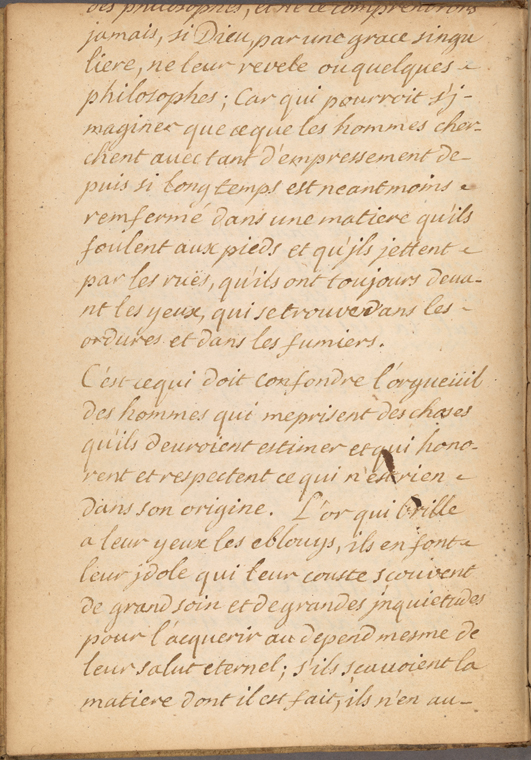 des philosophes, et ne le comprendrons
jamais, si Dieu, par une grace singu
liere, ne leur revele ou quelques -
philosophes; Car qui pourroit s'j-
maginer que ce que les hommes cher-
chent avec tant d'empressement de-
puis si long temps est neantmoins -
remfermé dans une matiere qu'ils
foulent aux pieds et qu'jls jettent -
par les ruës, qu'ils ont toujours deua-
nt les yeux, qui se trouve dans les -
ordures et dans les fumiers.
C'est ce qui doit confondre l'orgueiiil
des hommes qui meprisent des choses
qu'ils deuroient estimer et qui hono-
rent et respectent ce qui n'est rien -
dans son origine. L'or qui brille
a leur yeux les eblouys, ils en font -
leur jdole qui leur couste souvent
de grand soin et de grandes jnquietudes
pour l'acquerir au depend mesme de
leur salut eternel; s'ils scauoient la
matiere dont il est fait, ils n'en au-